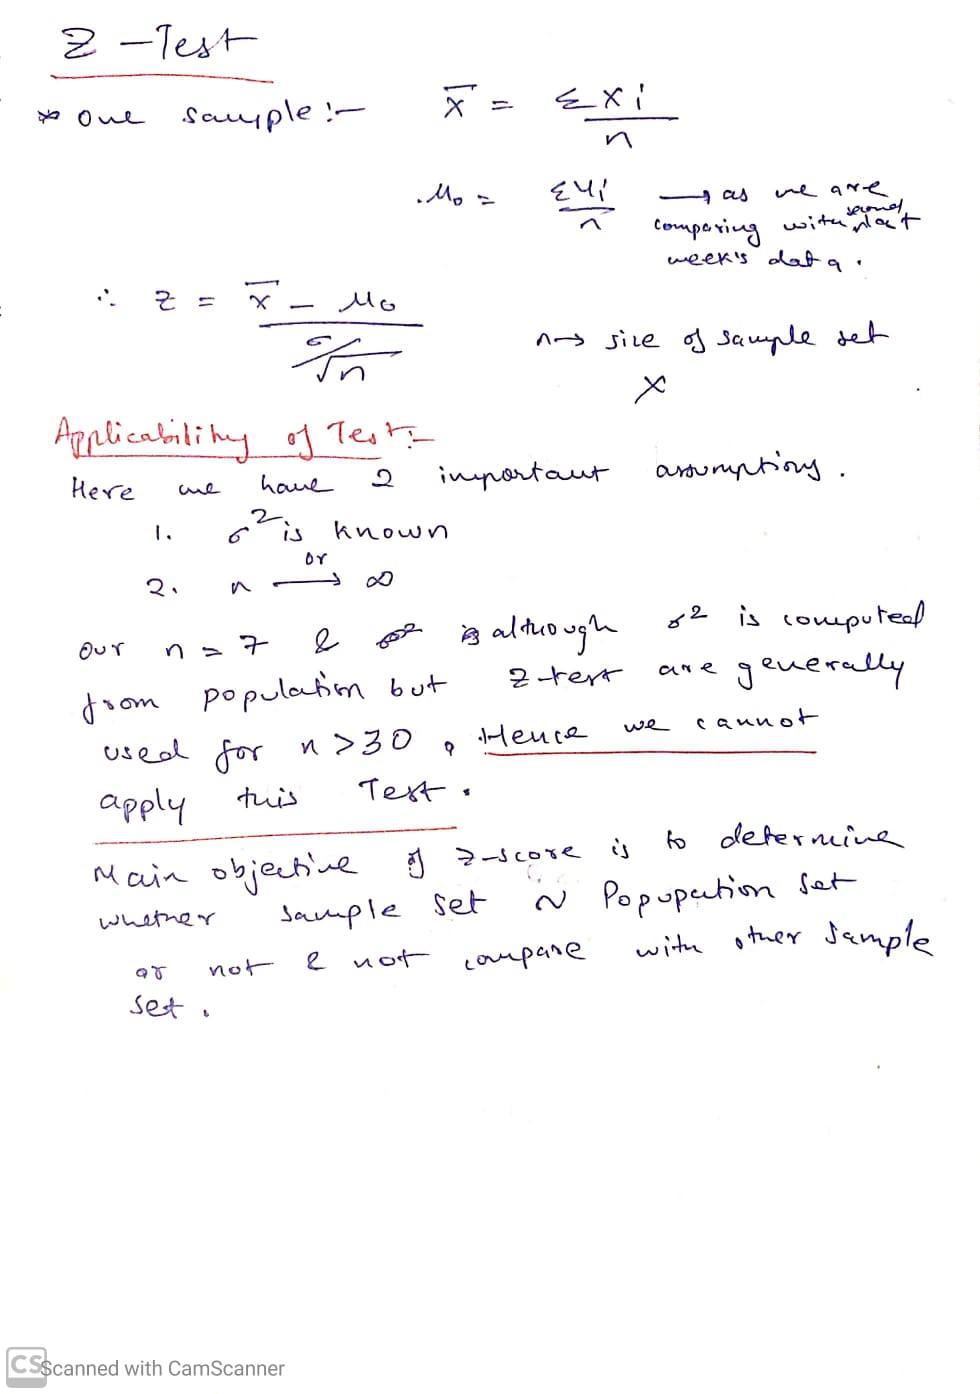 Z - Test
* One sample :- x̄ = Σxi / n
M₀ = Σyi / n → as we are
comparing with second last
week's data.
∴ Z = (x̄ - M₀) / (σ/√n)
n → size of sample set
X
Applicability of Test :-
Here we have 2 important assumptions.
1. σ² is known
or
2. n → ∞
Our n = 7 & although σ² is computed
from population but Z-test are generally
used for n > 30, Hence we cannot
apply this Test.
Main objective of z-score is to determine
whether sample set ~ Popupation set
or not & not compare with other sample
set.
CS Scanned with CamScanner